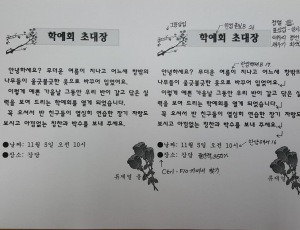 학예회 초대장
안녕하세요? 무더운 여름이 지나고 어느새 창밖의
나무들이 울긋불긋한 옷으로 바꾸어 입었어요.
이렇게 예쁜 가을날 그동안 우리 반이 갈고 닦은 실
력을 보여 드리는 학예회를 열게 되었습니다.
꼭 오셔서 반 친구들이 열심히 연습한 장기 자랑도
보시고 아낌없는 칭찬과 박수를 보내 주세요.
●날짜: 11월 5일 오전 10시
●장소: 강당
유혜영 올
학예회 초대장
안녕하세요? 무더운 여름이 지나고 어느새 창밖의
나무들이 울긋불긋한 옷으로 바꾸어 입었어요.
이렇게 예쁜 가을날 그동안 우리 반이 갈고 닦은 실
력을 보여 드리는 학예회를 열게 되었습니다.
꼭 오셔서 반 친구들이 열심히 연습한 장기 자랑도
보시고 아낌없는 칭찬과 박수를 보내 주세요.
●날짜: 11월 5일 오전 10시
●장소: 강당 줄간격 350%
Ctrl - F10
유혜영